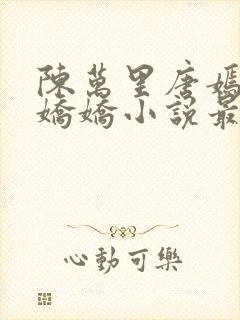 陳萬里唐嫣
嬌嬌小說最
心動可樂